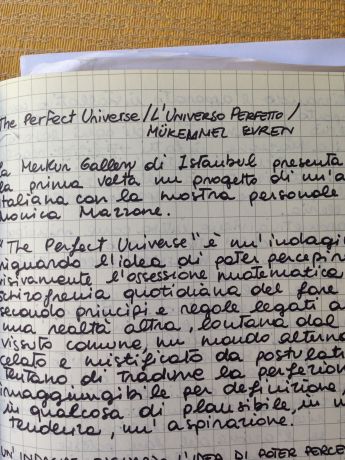 The Perfect Universe/L'Universo Perfetto/
MÜKEMMEL EVREN
La Merkur Gallery di Istanbul presenta
la prima volta un progetto di un'a
italiana con la mostra personale
Monica Mazzone.
"The Perfect Universe" è un'indagin
riguardo l'idea di poter percepir
visivamente l'ossessione matematica
schizofrenia quotidiana del fare
secondo principi e regole legati a
una realtà altra, lontana dal
vissuto comune, un mondo alterno
celato e mistificato da postulati
tentano di tradurre la perfezion
irraggiungibile per definizione,
in qualcosa di plausibile, in u
tendenza, un'aspirazione.
UN'INDAGINE RIGUARDO L'IDEA DI POTER PERCEP